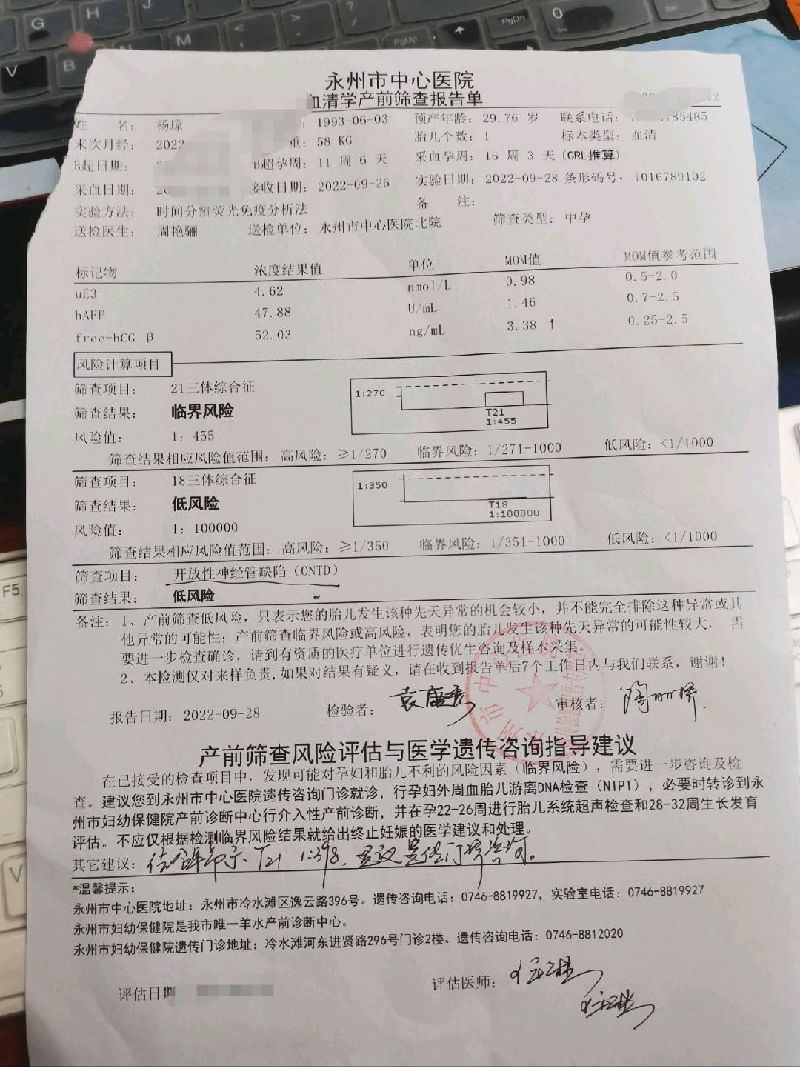 永州市中心医院
血清学产前筛查报告单
姓 名: 杨琼 1993-06-03 预产年龄: 29.76 岁 联系电话: 785485
末次月经: 2022 重: 58 KG 胎儿个数: 1 标本类型: 血清
B超日期: B超孕周: 11 周 6 天 采血孕周: 16 周 3 天 (CRL推算)
采血日期: 20 接收日期: 2022-09-26 实验日期: 2022-09-28 条形码号: 1016789102
实验方法: 时间分辨荧光免疫分析法 备 注:
送检医生: 周艳骊 送检单位: 永州市中心医院北院 筛查类型: 中孕
标记物 浓度结果值 单位 MOM值 MOM值参考范围
uE3 4.62 nmol/L 0.98 0.5-2.0
hAFP 47.88 U/mL 1.46 0.7-2.5
free-hCG β 52.03 ng/mL 3.38 ↑ 0.25-2.5
风险计算项目
筛查项目: 21三体综合征
筛查结果: 临界风险
风险值: 1: 455
1:270
T21
1:455
筛查结果相应风险值范围: 高风险: ≥1/270 临界风险: 1/271-1000 低风险: <1/1000
筛查项目: 18三体综合征
筛查结果: 低风险
风险值: 1: 100000
1:350
T18
1:100000
筛查结果相应风险值范围: 高风险: ≥1/350 临界风险: 1/351-1000 低风险: <1/1000
筛查项目: 开放性神经管缺陷(ONTD)
筛查结果: 低风险
备注: 1、产前筛查低风险, 只表示您的胎儿发生该种先天异常的机会较小, 并不能完全排除这种异常或其
他异常的可能性; 产前筛查临界风险或高风险, 表明您的胎儿发生该种先天异常的可能性较大. 需
要进一步检查确诊, 请到有资质的医疗单位进行遗传优生咨询及样本采集.
2、本检测仅对来样负责, 如果对结果有疑义, 请在收到报告单后7个工作日内与我们联系, 谢谢!
报告日期: 2022-09-28 检验者: 审核者:
产前筛查风险评估与医学遗传咨询指导建议
在已接受的检查项目中, 发现可能对孕妇和胎儿不利的风险因素(临界风险), 需要进一步咨询及检
查。建议您到永州市中心医院遗传咨询门诊就诊, 行孕妇外周血胎儿游离DNA检查(NIPT), 必要时转诊到永
州市妇幼保健院产前诊断中心行介入性产前诊断, 并在孕22-26周进行胎儿系统超声检查和28-32周生长发育
评估。不应仅根据检测临界风险结果就给出终止妊娠的医学建议和处理。
其它建议: T21 1:398
*温馨提示:
永州市中心医院地址: 永州市冷水滩区逸云路396号。遗传咨询电话: 0746-8819927, 实验室电话: 0746-8819927
永州市妇幼保健院是我市唯一羊水产前诊断中心。
永州市妇幼保健院遗传门诊地址: 冷水滩河东进贤路296号门诊2楼。遗传咨询电话: 0746-8812020
评估日期 评估医师: